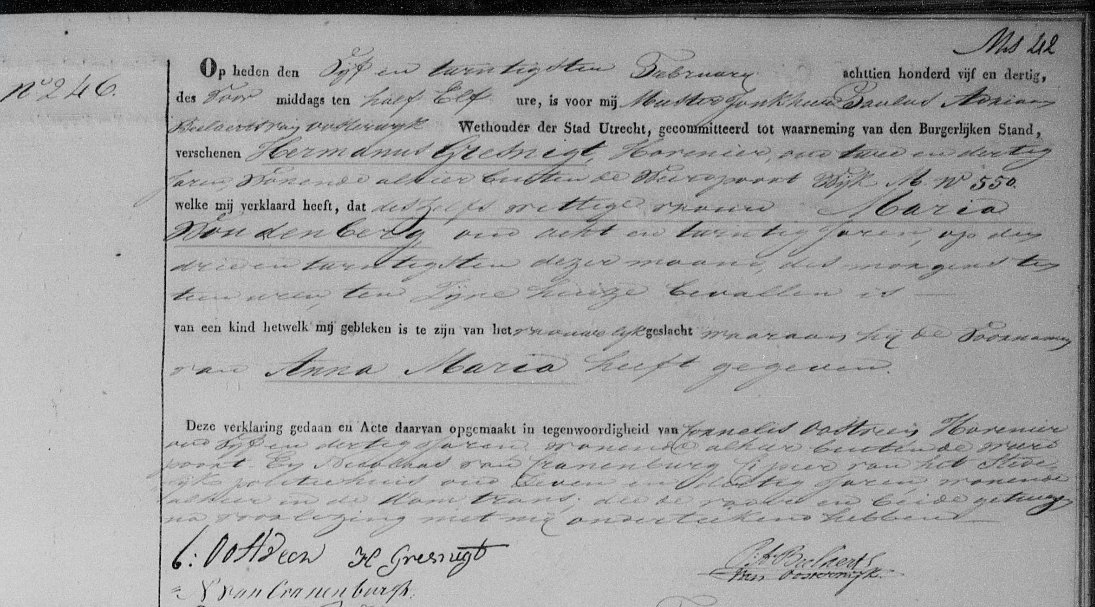 Op heden den Vijf en twintigsten February achttien honderd vijf en dertig,
No 246.
des Voor middags ten half Elf ure, is voor mij Meester Jonkheer Paulus Adriaan
Beelaerts van Oosterwijk Wethouder der Stad Utrecht, gecommitteerd tot waarneming van den Burgerlijken Stand,
verschenen Hermanus Gresnigt, Hovenier, oud twee en dertig
Jaren, Wonende alhier buiten de Weerdpoort Wijk M No 550.
welke mij verklaard heeft, dat deszelfs wettige vrouw Maria
Woudenberg, oud acht en twintig Jaren, op den
drie en twintigsten dezer maand, des morgens ten
tien uren ten Zijne huize bevallen is —
van een kind hetwelk mij gebleken is te zijn van het vrouwelijk geslacht waaraan hij de Voornamen
van Anna Maria heeft gegeven.
Deze verklaring gedaan en Acte daarvan opgemaakt in tegenwoordigheid van Kornelis Oostveen Hovenier
oud Vijf en dertig Jaren, wonende alhier buiten de Weerd
poort En Nicolaas van Cranenburg Cipier van het Stede
lijk politiehuis oud Zeven en dertig Jaren wonende
alhier in de Dom trans; die de vader en beide getuigen
na voorlezing met mij onderteekend hebben
C: Oostveen H Gresnigt
P:A Beelaerts
van Oosterwijk.
N van Cranenburgh.